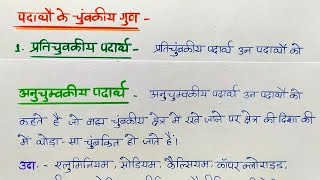 पदार्थो के चुंबकीय गुण -
1. प्रतिचुंबकीय पदार्थ - प्रतिचुंबकीय पदार्थ उन पदार्थो को
अनुचुम्बकीय पदार्थ - अनुचुम्बकीय पदार्थ उन पदार्थो को
कहते है जो बाह्य चुंबकीय क्षेत्र में रखे जाने पर क्षेत्र की दिशा की
में थोड़ा-सा चुंबकित हो जाते है।
उदा. - एलुमिनियम, सोडियम, कैल्सियम, कॉपर क्लोराइड,